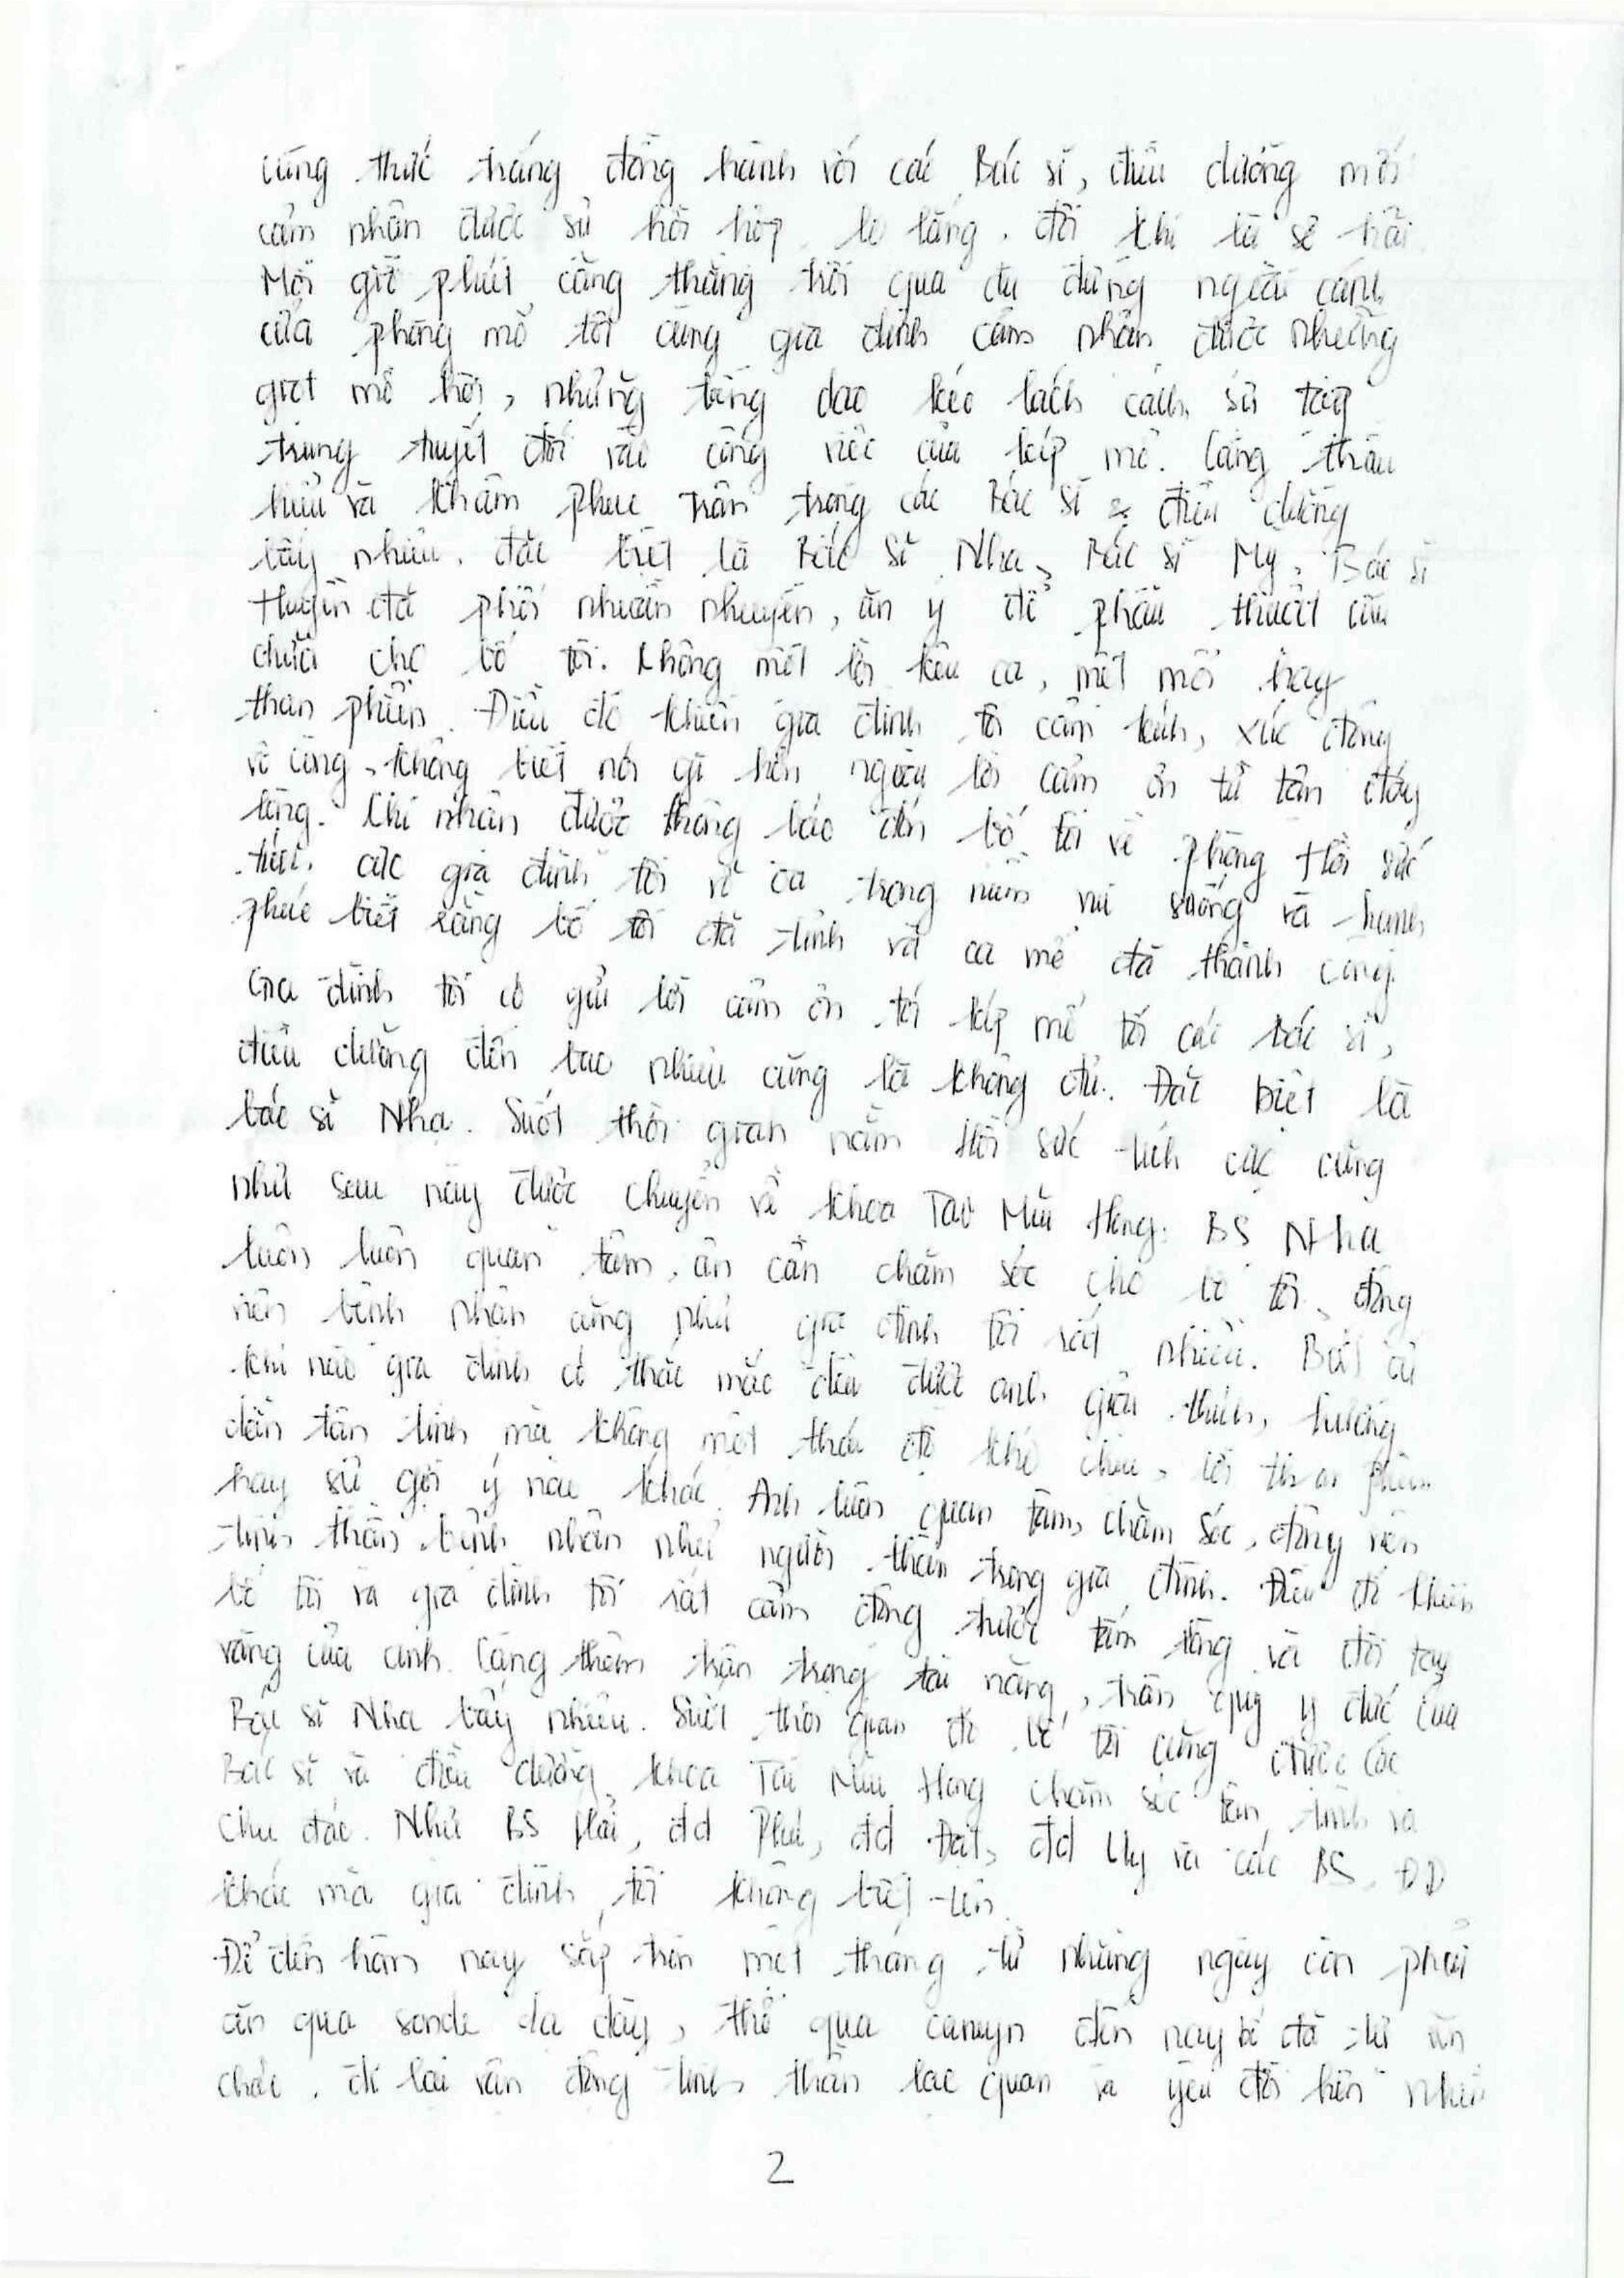 cùng thức trắng đồng hành với các Bác sĩ, điều dưỡng mới
cảm nhận được sự hồi hộp, lo lắng, đôi khi là sợ hãi.
Mỗi giờ phút căng thẳng trôi qua dù đứng ngoài cánh
cửa phòng mổ tôi cùng gia đình cảm nhận được những
giọt mồ hôi, những tiếng dao kéo lách cách, sự tập
trung tuyệt đối vào công việc của kíp mổ. Càng thấu
hiểu và khâm phục trân trọng các Bác sĩ & điều dưỡng
bấy nhiêu. đặc biệt là Bác sĩ Nha, Bác sĩ Mỹ, Bác sĩ
Huyền đã phối nhuần nhuyễn, ăn ý để phẫu thuật cứu
chữa cho bố tôi. Không một lời kêu ca, mệt mỏi hay
than phiền. Điều đó khiến gia đình tôi cảm kích, xúc động
vô cùng, không biết nói gì hơn ngoài lời cảm ơn từ tận đáy
lòng. Khi nhận được thông báo đón bố tôi về phòng Hồi sức
tích cực gia đình tôi vỡ òa trong niềm vui sướng và hạnh
phúc biết rằng bố tôi đã tỉnh và ca mổ đã thành công.
Gia đình tôi có gửi lời cảm ơn tới kíp mổ tới các bác sĩ,
điều dưỡng đến bao nhiêu cũng là không đủ. Đặc biệt là
bác sĩ Nha. Suốt thời gian nằm Hồi sức tích cực cũng
như sau này được chuyển về khoa Tai Mũi Họng. BS Nha
luôn luôn quan tâm, ân cần chăm sóc cho bố tôi, động
viên bệnh nhân cũng như gia đình tôi rất nhiều. Bất cứ
khi nào gia đình có thắc mắc đều được anh giải thích, hướng
dẫn tận tình mà không một thái độ khó chịu, lời than phiền
hay sự gợi ý nào khác. Anh luôn quan tâm, chăm sóc, động viên
tinh thần bệnh nhân như người thân trong gia đình. Điều đó khiến
bố tôi và gia đình tôi rất cảm động trước tấm lòng và đôi tay
vàng của anh. Càng thêm trân trọng tài năng, trân quý y đức của
Bác sĩ Nha bấy nhiêu. Suốt thời gian đó bố tôi cũng được các
Bác sĩ và điều dưỡng khoa Tai Mũi Họng chăm sóc tận tình và
chu đáo. Như BS Hải, đd Phú, đd Đạt, đd Uy và các BS, ĐD
khác mà gia đình tôi không biết tên.
Để đến hôm nay sắp tròn một tháng từ những ngày còn phải
ăn qua sonde dạ dày, thở qua canuyn đến nay bố đã tự ăn
cháo, đi lại vận động tinh thần lạc quan và yêu đời hơn nhiều
2